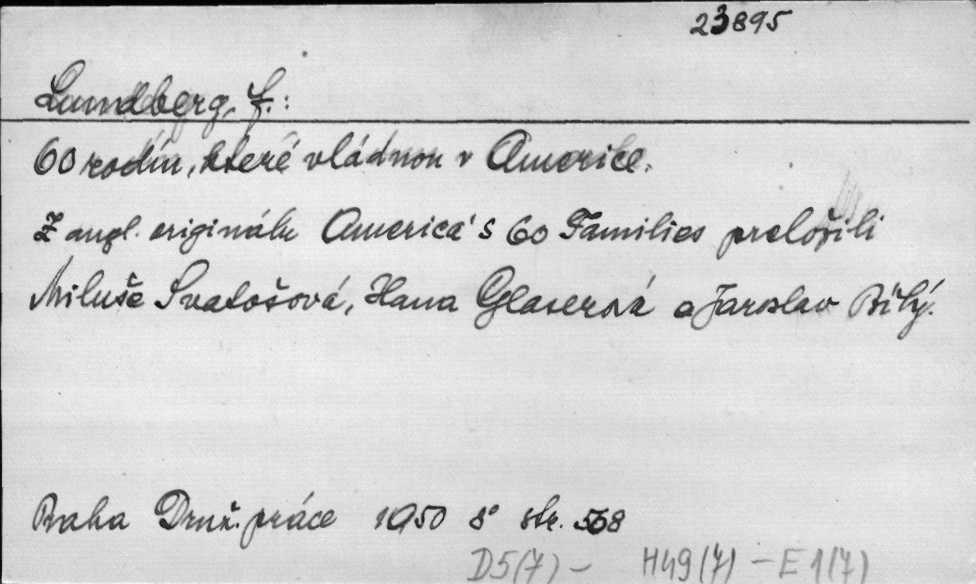 23895
Lundberg, f.:
60 rodin, které vládnou v Americe.
Z angl. originálu America's 60 Families preložili
Miluše Svatošová, Hana Glaserová a Jaroslav Bílý.
Praha Druž. práce 1950 8° str. 568
D5(7) - H49(7) - E1(7)